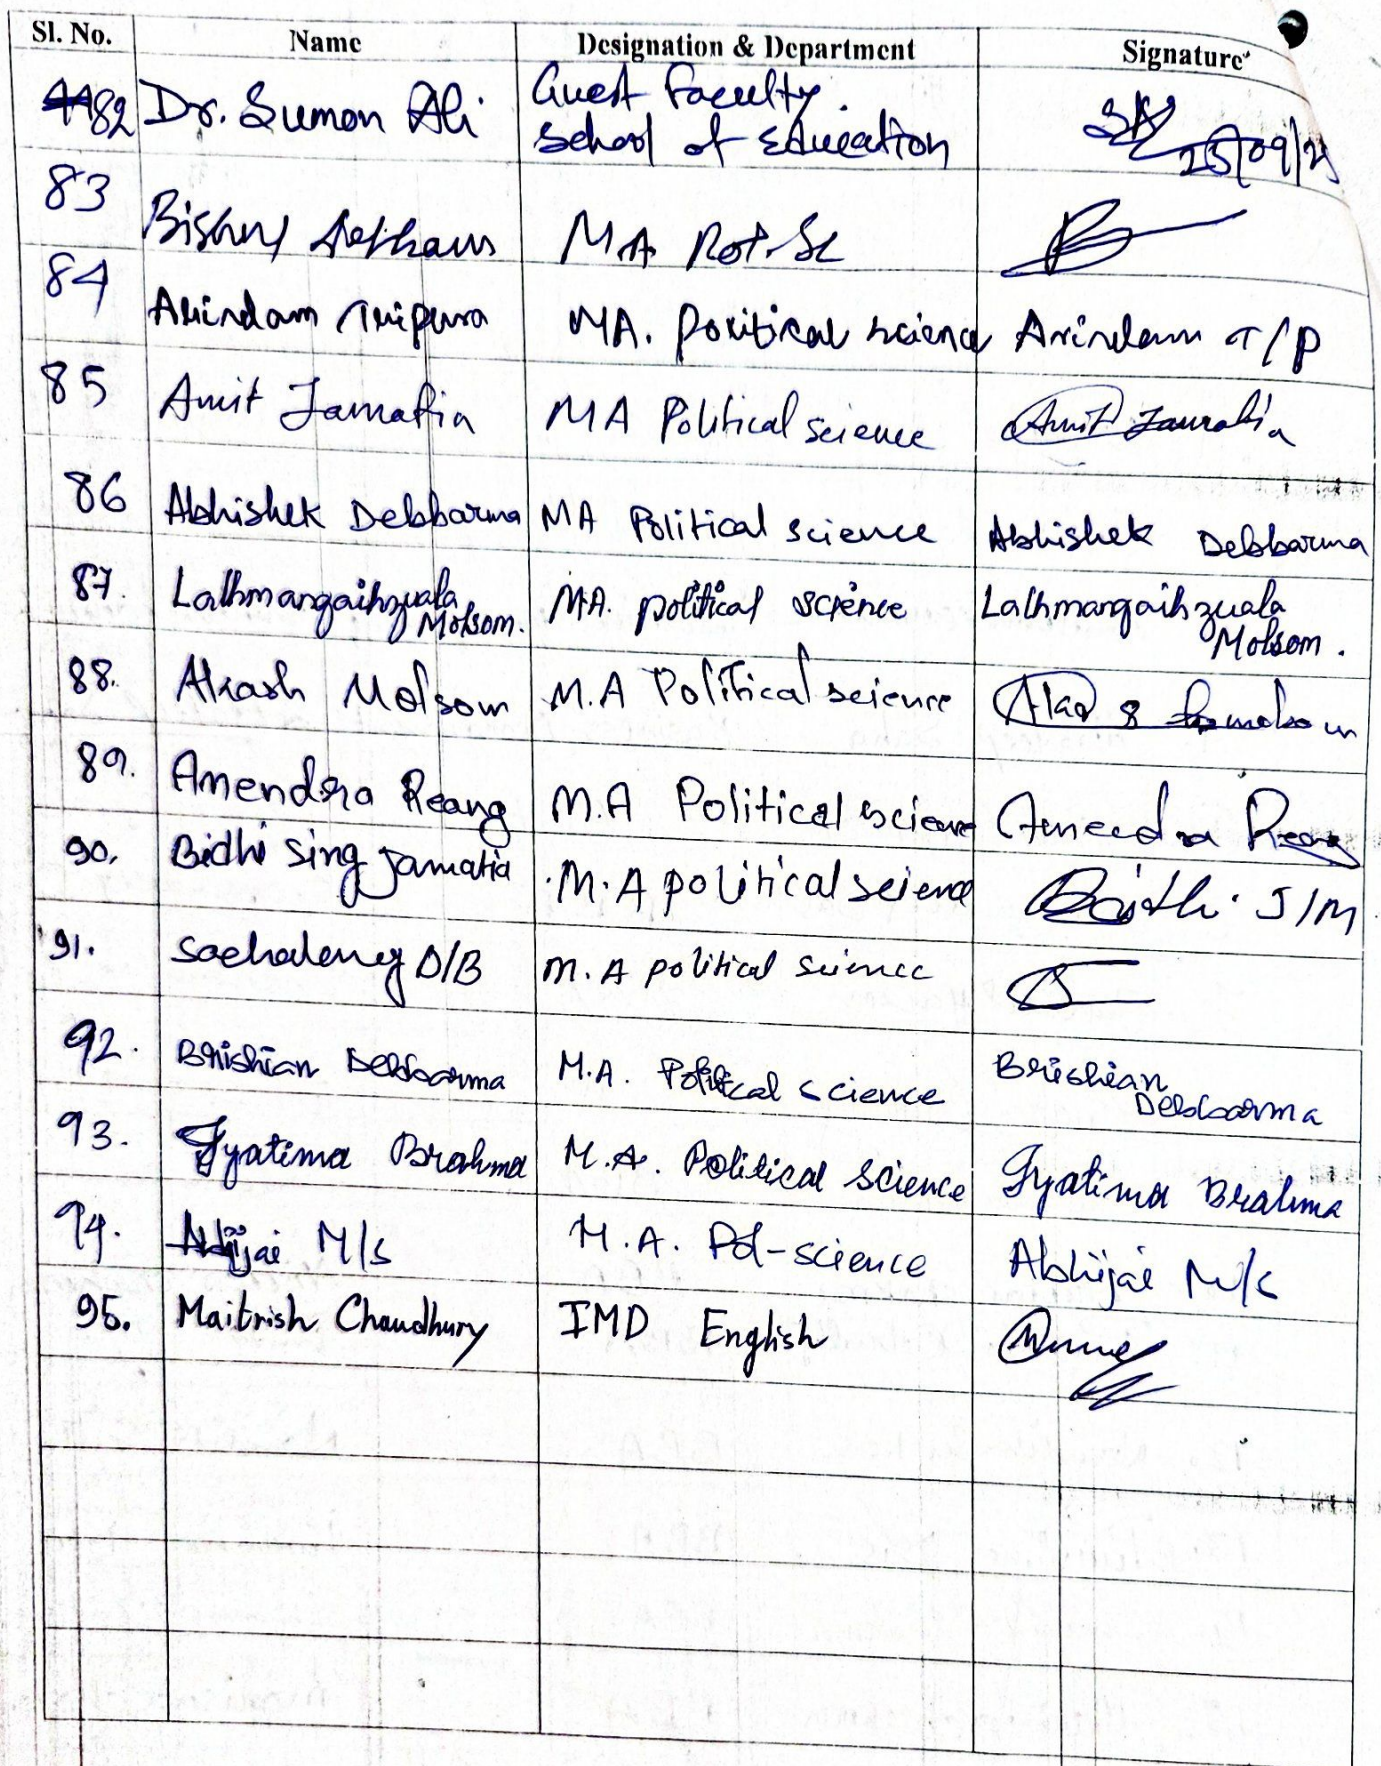 Sl. No. Name Designation & Department Signature
82 Dr. Sumon Ali Guest Faculty.
School of Education 25/09/25
83
Bishny MA Pol. Sc
84
Arindam Tripura MA. Political science Arindam T/P
85 Amit Jamatia MA Political science Amit Jamatia
86 Abhishek Debbarma MA Political science Abhishek Debbarma
87. Lalhmangaihzuala M.A. political science Lalhmangaihzuala
Molsom. Molsom.
88. Akash Molsom M.A Political science
89. Amendra Reang M.A Political science Amendra Reang
90. Bidhi Sing Jamatia M.A political science Bidhi J/M
91. Sachaleng D/B M.A political science
92. Brishian Debbarma M.A. Political science Brishian
Debbarma
93. Jyatima Brahma M.A. Political Science Jyatima Brahma
94. Abhijai M/S M.A. Pol-science Abhijai M/S
95. Maitrish Chaudhury IMD English